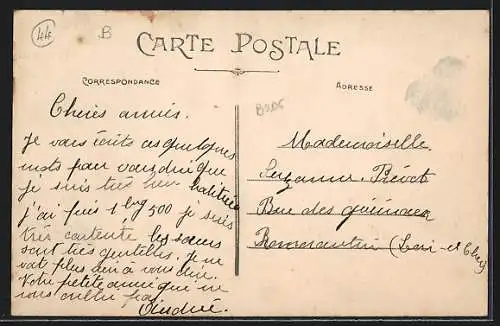 44
B
CARTE POSTALE
CORRESPONDANCE
ADRESSE
B205
Cheres amies.
Je vous écrits ces quelques
mots pour vous dire que
je suis très
j'ai pris 1 kg 500 je suis
très contente les sœurs
sont très gentilles. Je ne
vat plus rien a vous dire.
Votre petite amie qui ne
vous oublie pas
Mademoiselle
Suzanne Prévot
Rue des
Romorantin (Loir-et-Cher)